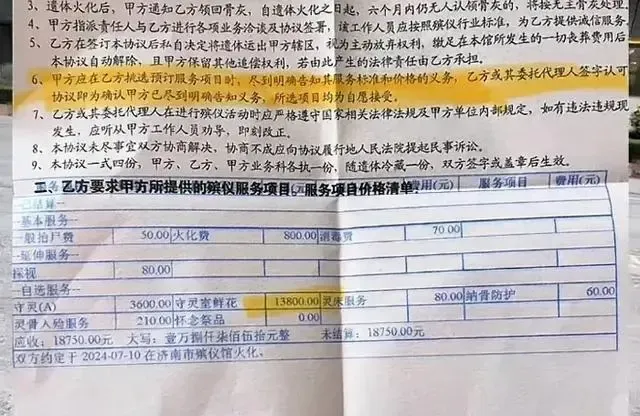 3、遗体火化后，甲方通知乙方领回骨灰，自遗体火化之日起，六个月内仍无人认领骨灰的，将按无主骨灰处理。
4、甲方指派责任人与乙方进行各项业务洽谈及协议签署，该工作人员应按照殡仪行业标准，为乙方提供诚信服务。
5、乙方在签订本协议后私自决定将遗体运出甲方辖区，视为主动放弃权利，撤足在本馆所发生的一切丧葬费用后
本协议自动解除，且甲方保留其他追偿权利，若由此产生的法律责任由乙方承担。
6、甲方应在乙方挑选预订服务项目时，尽到明确告知其服务标准和价格的义务，乙方或其委托代理人签字认可
协议即为确认甲方已尽到明确告知义务，所选项目均为自愿接受。
7、乙方或其委托代理人在进行殡仪活动时应严格遵守国家相关法律法规及甲方单位内部规定，如有违法违规现
发生，应听从甲方工作人员劝导，即刻改正。
8、本协议未尽事宜双方协商解决，协商不成应向协议履行地人民法院提起民事诉讼。
9、本协议一式四份，甲方、乙方、甲方业务科各执一份，随遗体冷藏一份，双方签字或盖章后生效。
二、乙方要求甲方所提供的殡仪服务项目、服务项目价格清单：
费用(元) 服务项目 费用(元)
--已结算--
--基本服务--
一般抬尸费 50.00 火化费 800.00 消毒费 70.00
--延伸服务--
探视 80.00
--自选服务--
守灵(A) 3600.00 守灵室鲜花 13800.00 灵床服务 80.00 纳骨防护 60.00
灵骨入殓服务 210.00 怀念祭品 0.00
应收：18750.00元 大写：壹万捌仟柒佰伍拾元整 未结算：18750.00元
双方约定于 2024-07-10 在济南市殡仪馆火化。